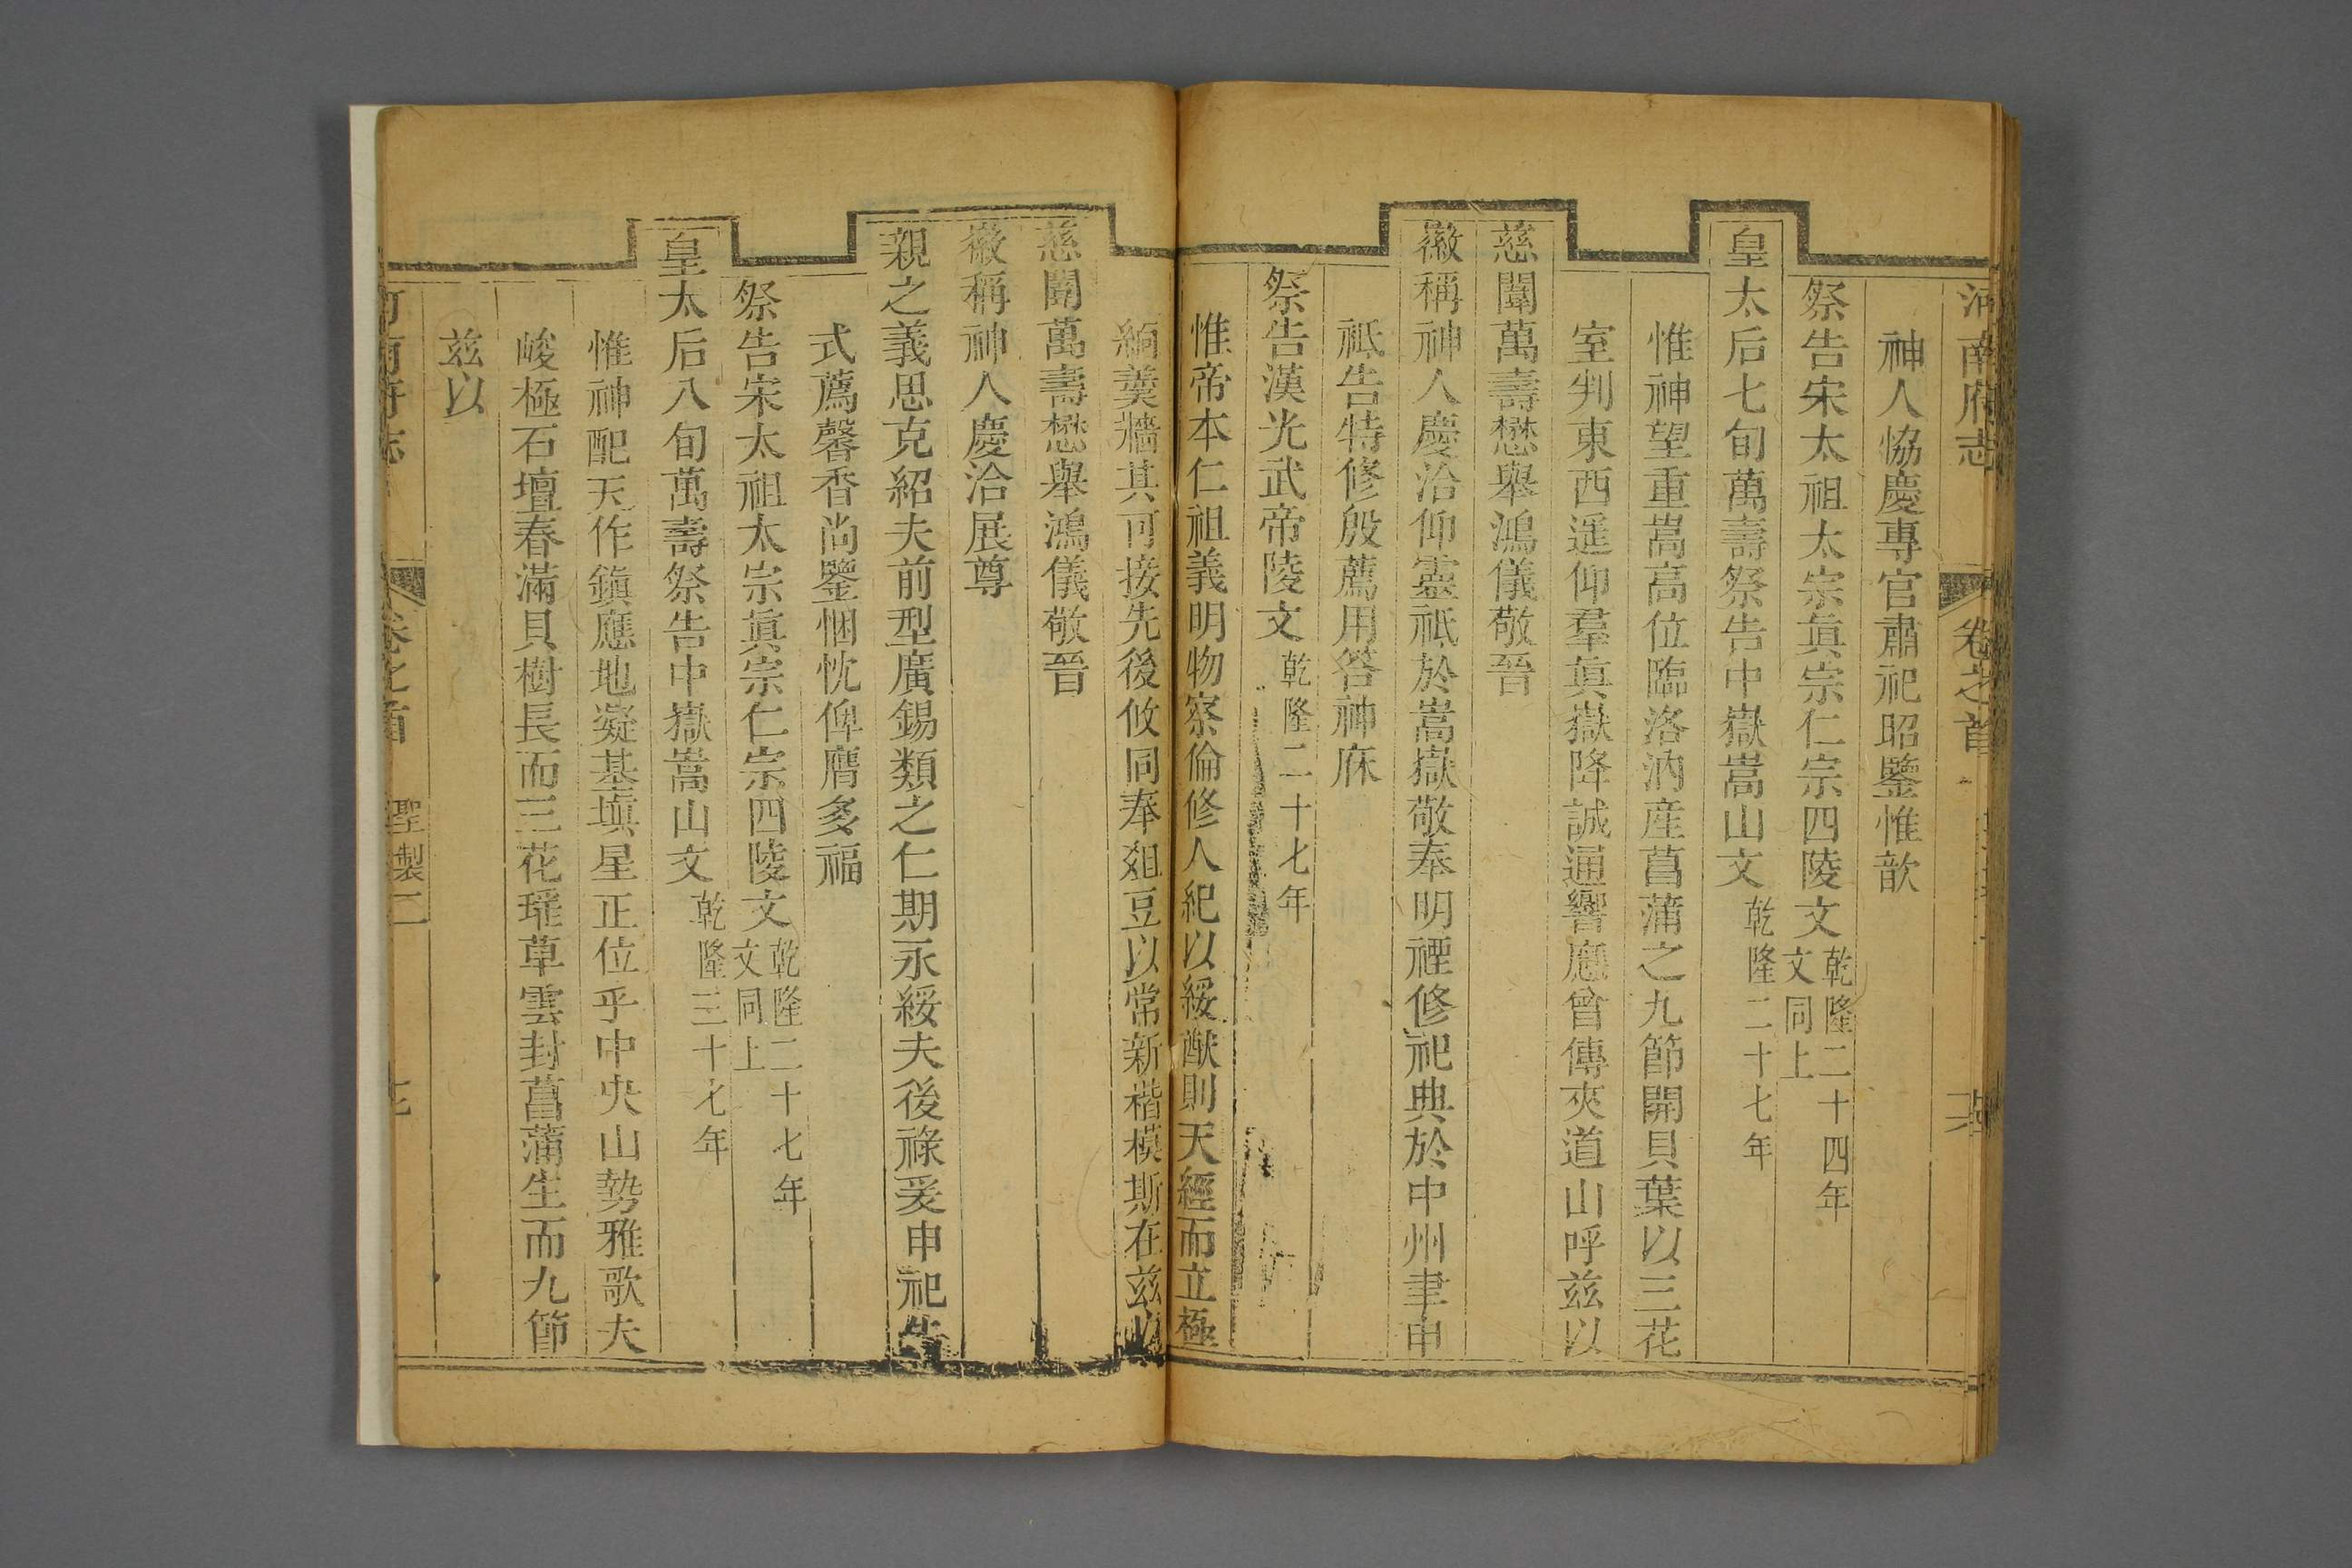 河南府志 卷之首
神人協慶專官肅祀昭鑒惟歆
祭告宋太祖太宗眞宗仁宗四陵文乾隆二十四年文同上
皇太后七旬萬壽祭告中嶽嵩山文乾隆二十七年
惟神望重嵩高位臨洛汭産菖蒲之九節開貝葉以三花
室判東西遥仰羣眞嶽降誠通響應曾傳夾道山呼兹以
慈闈萬壽懋舉鴻儀敬晉
徽稱神人慶洽仰靈祇於嵩嶽敬奉明禋修祀典於中州聿申
祗告特修殷薦用答神庥
祭告漢光武帝陵文乾隆二十七年
惟帝本仁祖義明物察倫修人紀以綏猷則天經而立極
緬羹牆其可接先後攸同奉俎豆以常新楷模斯在兹以
慈闈萬壽懋舉鴻儀敬晉
徽稱神人慶洽展尊
親之義思克紹夫前型廣錫類之仁期永綏夫後祿爰申祀告
式薦馨香尚鑒悃忱俾膺多福
祭告宋太祖太宗眞宗仁宗四陵文乾隆二十七年文同上
皇太后八旬萬壽祭告中嶽嵩山文乾隆三十七年
惟神配天作鎭應地凝基塡星正位乎中央山勢雅歌夫
峻極石壇春滿貝樹長而三花瑶草雲封菖蒲生而九節
兹以
河南府志 卷之首 聖製二 七